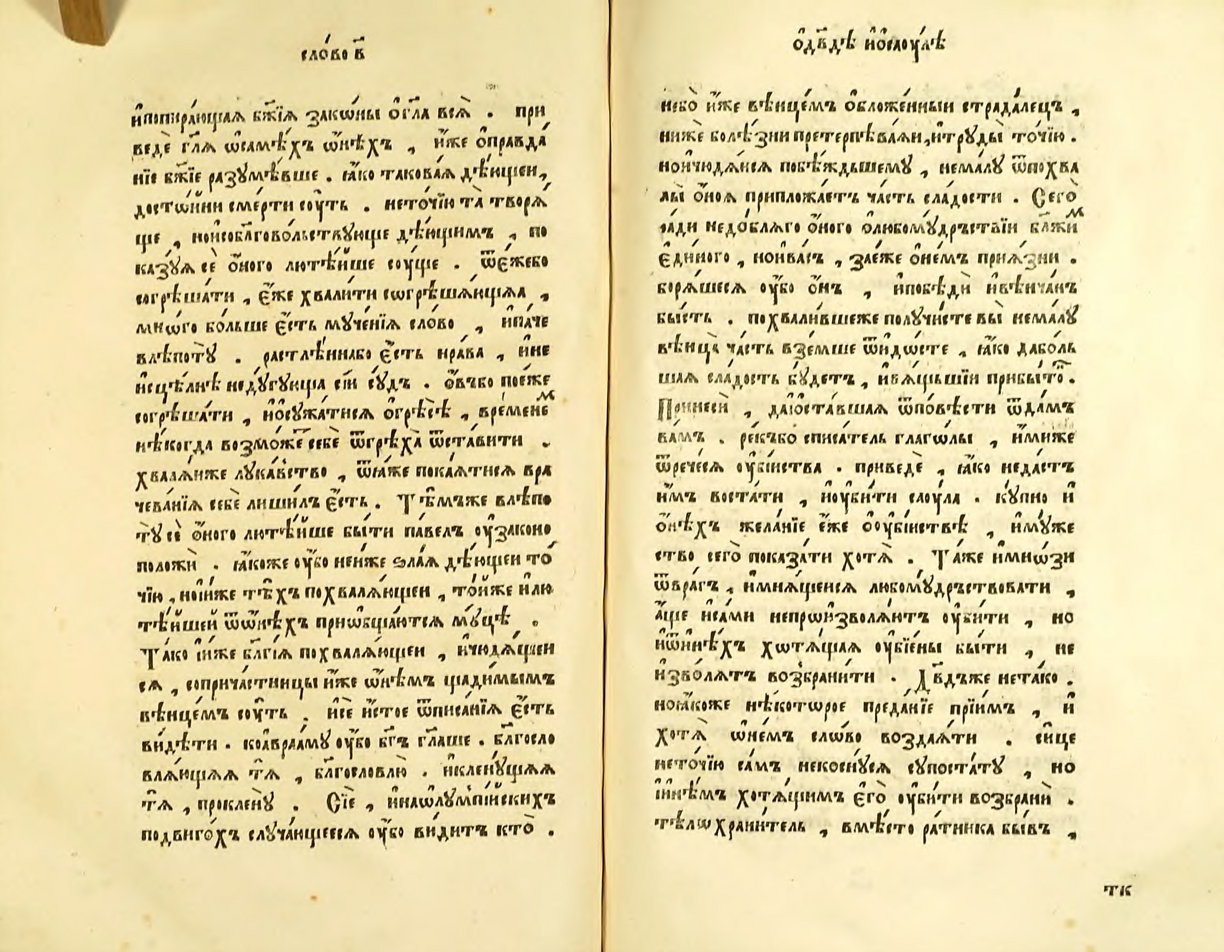 сло́во в҃
и҆попира́ющаꙗ бж҃їѧ зако́ны ѻ҆гла всѧ̀ . при
ведѐ гл҃ѧ ѡ҆самѣ́хъ ѡ҆нѣ́хъ , и҆́же ѻ҆правда́
нїе бж҃їе разꙋмѣ́вше . ꙗ҆́ко такова́ѧ дѣ́ющеи ,
досто́йни сме́рти сꙋ́ть . нето́чїю та̀ творѧ́
ще , нои҆соблаговольствꙋюще дѣ́ющимъ , по
казꙋѧ сѐ ѻ҆́ного лютѣ́йше соуще . ѿе҆́жебо
согрѣша́ти , е҆́же хвали́ти сѡгрѣшѧ́ющаꙗ ,
мно́го бо́льше е҆́сть мꙋче́нїѧ сло́во , и҆па́че
влѣпотꙋ . растлѣ́ннабо е҆́сть нра́ва , и҆не
и҆сцѣ́лнѣ недꙋ́гꙋюща сі́и сꙋ́дъ . ѻ҆въбо по́еже
согрѣша́ти , и҆ѻ҆сꙋжа́тисѧ ѻ҆грѣсѣ̀ , вре́мене
нѣ́когда возмо́же себѐ ѿгрѣха̀ ѿста́вити .
хвалѧ́йже лꙋка́вство , ѿꙗ҆́же покаѧ́тисѧ вра
чева́нїѧ себѐ лиши́лъ е҆́сть . Тѣ́мъже влѣпо
тꙋ̀ сѐ ѻ҆́ного лютѣ́йше бы́ти па́велъ оу҆зако́но
положѝ . ꙗ҆́коже оу҆́бо не́иже ѕла́ꙗ дѣ́ющеи то́
чїю , нои҆и҆́же тѣ́хъ похвалѧ́ющеи , то́йже и҆лю
тѣ́йшей ѿѡ҆нѣ́хъ приѡбща́ютсѧ мꙋ́цѣ .
Та́ко и҆и҆́же блг҃і́ѧ похвалѧ́ющеи , и҆чюдѧ́щеи
сѧ , соприча́стницы и҆́же ѡ҆́нѣмъ щади́мымъ
вѣнце́мъ сꙋ́ть . и҆сѐ и҆́стое ѿписа́нїѧ е҆́сть
ви́дѣти . коа҆враа́мꙋ оу҆́бо бг҃ъ гл҃аше . бл҃госло
влѧ́ющаѧ тѧ̀ , бл҃гословлю̀ . и҆кленꙋ́щаѧ
тѧ̀ , проклену̀ . Сїѐ , и҆наѡ҆лꙋмпі́йскихъ
подвиго́хъ слꙋча́ющеесѧ оу҆́бо ви́дитъ кто̀ .
ѻ҆дв҃дѣ и҆ѻ҆саꙋ́лѣ
ни́бо и҆́же вѣнце́мъ ѻ҆бложе́нный страда́лецъ ,
ни́же болѣ́зни претерпѣва́ѧи , и҆трꙋды̀ то́чїю .
нои҆чюдѧ́йсѧ побѣжда́вшемꙋ , нема́лꙋ ѿпохва
лы̀ ѻ҆́ноѧ припложа́етъ ча́сть сла́дости . Сего̀
ра́ди недо́бляго ѻ҆́ного ѻ҆любомꙋ́дрьствїи бл҃жим
е҆ди́ного , нои҆ва́съ , зае҆́же ѻ҆не́мъ прїѧ́зни .
борѧ́шесѧ оу҆́бо ѻ҆́нъ , и҆побѣдѝ и҆вѣнча́нъ
бы́сть . похвали́вшеже полꙋчи́сте вы̀ нема́лꙋ
вѣнца̀ ча́сть взе́мше ѿидо́сте , ꙗ҆́ко дабо́ль
шаѧ сла́дость бꙋ́детъ , и҆вѧ́щьшїи прибы́то .
Принесѝ , даѻ҆ста́вшаѧ ѿпо́вѣсти ѿда́мъ
ва́мъ . рекъ́бо списа́тель глаго́лы , и҆́миже
ѿрече́сѧ оу҆бі́иства . приведѐ , ꙗ҆́ко неда́стъ
и҆̀мъ воста́ти , и҆оу҆би́ти саоу́ла . кꙋ́пно и҆
ѻ҆нѣ́хъ жела́нїе е҆́же ѻ҆оу҆бі́йствѣ , и҆мꙋ́же
ство сего̀ показа́ти хотѧ̀ . Та́же и҆мно́зи
ѿвра́гъ , и҆мнѧ́щеисѧ любомꙋ́дрьствовати ,
а҆́ще и҆са́ми непрои҆зволѧ́тъ оу҆би́ти , но
и҆ѿи҆нѣ́хъ хотѧ́щаѧ оу҆бїе́ны бы́ти , не
и҆зво́лѧтъ возбрани́ти . Дв҃дъже нета́ко .
ноꙗ҆́коже нѣ́которое преда́нїе прїи́мъ , и҆
хотѧ̀ ѡ҆не́мъ сло́во возда́ѧти . си́це
нето́чїю са́мъ некоснꙋ́сѧ сꙋпоста́тꙋ , но
и҆и҆нѣ́мъ хотѧ́щимъ е҆го̀ оу҆би́ти возбранѝ .
тѣ́лохрани́тель , вмѣ́сто ра́тника бы́въ ,
тк